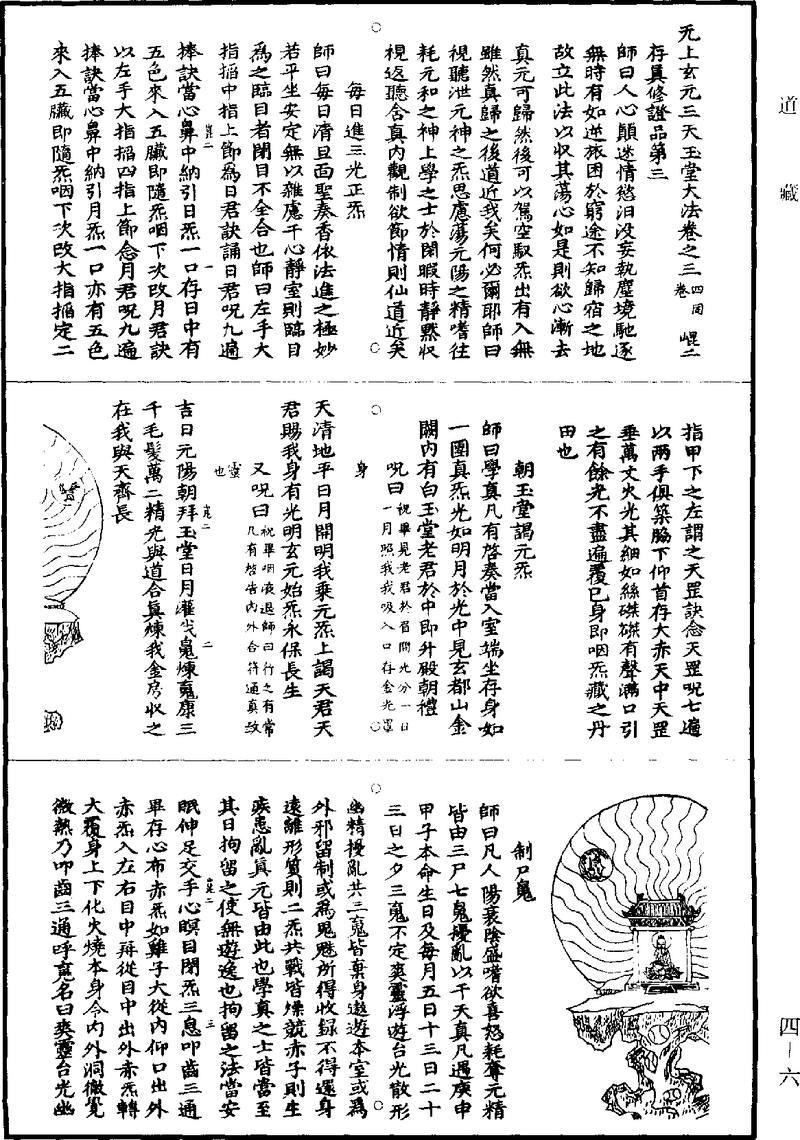 道藏
四－六
无上玄元三天玉堂大法卷之三 四同卷 崐二
存真修證品第三
師曰人心顛迷情慾汨没妄執塵境馳逐
無時有如逆旅困於窮途不知歸宿之地
故立此法以收其蕩心如是則欲心漸去
真元可歸然後可以駕空馭炁出有入無
雖然真歸之後道近我矣何必爾耶師曰
視聽泄元神之炁思慮蕩元陽之精嗜往
耗元和之神上學之士於閑暇時靜默收
視返聽舍真內觀制欲節情則仙道近矣
每日進三光正炁
師曰每日清旦面聖奏香依法進之極妙
若平坐安定無以雜慮干心靜室則臨目
為之臨目者閉目不全合也師曰左手大
指搯中指上節為日君訣誦日君呪九遍
捧訣當心鼻中納引日炁一口存日中有
五色來入五臟即隨炁咽下次改月君訣
以左手大指搯四指上節念月君呪九遍
捧訣當心鼻中納引月炁一口亦有五色
來入五臟即隨炁咽下次改大指搯定二
指甲下之左謂之天罡訣念天罡呪七遍
以兩手俱築脇下仰首存大赤天中天罡
垂萬丈火光其細如絲磔磔有聲滿口引
之有餘光不盡遍覆已身即咽炁藏之丹
田也
朝玉堂謁元炁
師曰學真凡有啓奏當入室端坐存身如
一團真炁光如明月於光中見玄都山金
闕內有白玉堂老君於中即升殿朝禮
呪曰 祝畢見老君於眉間光分一日一月照我我吸入口存金光罩身
天清地平日月開明我乘元炁上謁天君天
君賜我身有光明玄元始炁永保長生
又呪曰 祝畢咽液退師曰行之有常凡有啓告內外合符通真致靈也
吉日元陽朝拜玉堂日月灌戈䰟煉䰟康三
千毛髮萬二精光與道合真煉我金房收之
在我與天齊長
制尸鬼
師曰凡人陽衰陰盛嗜欲喜怒耗奪元精
皆由三尸七鬼擾亂以干天真凡遇庚申
甲子本命生日及每月五日十三日二十
三日之夕三䰟不定爽靈浮遊台光散形
幽精擾亂共三䰟皆棄身遨遊本室或為
外邪留制或為鬼魅所得收録不得還身
遠離形質則二炁共戰皆燥競赤子則生
疾患亂真元皆由此也學真之士皆當至
其日拘留之使無遊逸也拘留之法當安
眠伸足交手心瞑目閉炁三息叩齒三通
畢存心布赤炁如雞子大從內仰口出外
赤炁入左右目中再從目中出外赤炁轉
大覆身上下化火燒本身令內外洞徹覺
微熱乃叩齒三通呼䰟名曰爽靈台光幽